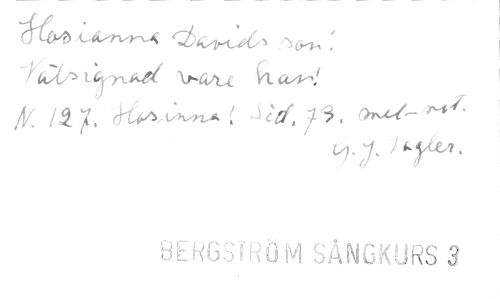 Hosianna Davids son!
Välsignad vare han!
N. 127. Hosinna! Sid. 73. mel-not.
G. J. Vogler.
BERGSTRÖM SÅNGKURS 3